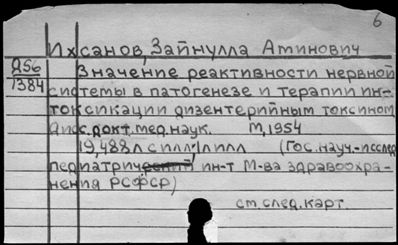 б
Ихсанов, Зайнулла Аминович
Д56 Значение реактивности нервной
1384 системы в патогенезе и терапии ин-
токсикации дизентерийным токсином
Дисс. докт. мед. наук. М, 1954
19, 488л с илл; 1л илл (Гос. науч.-исслед
педиатрический ин-т М-ва здравоохра-
нения РСФСР)
см. след. карт.